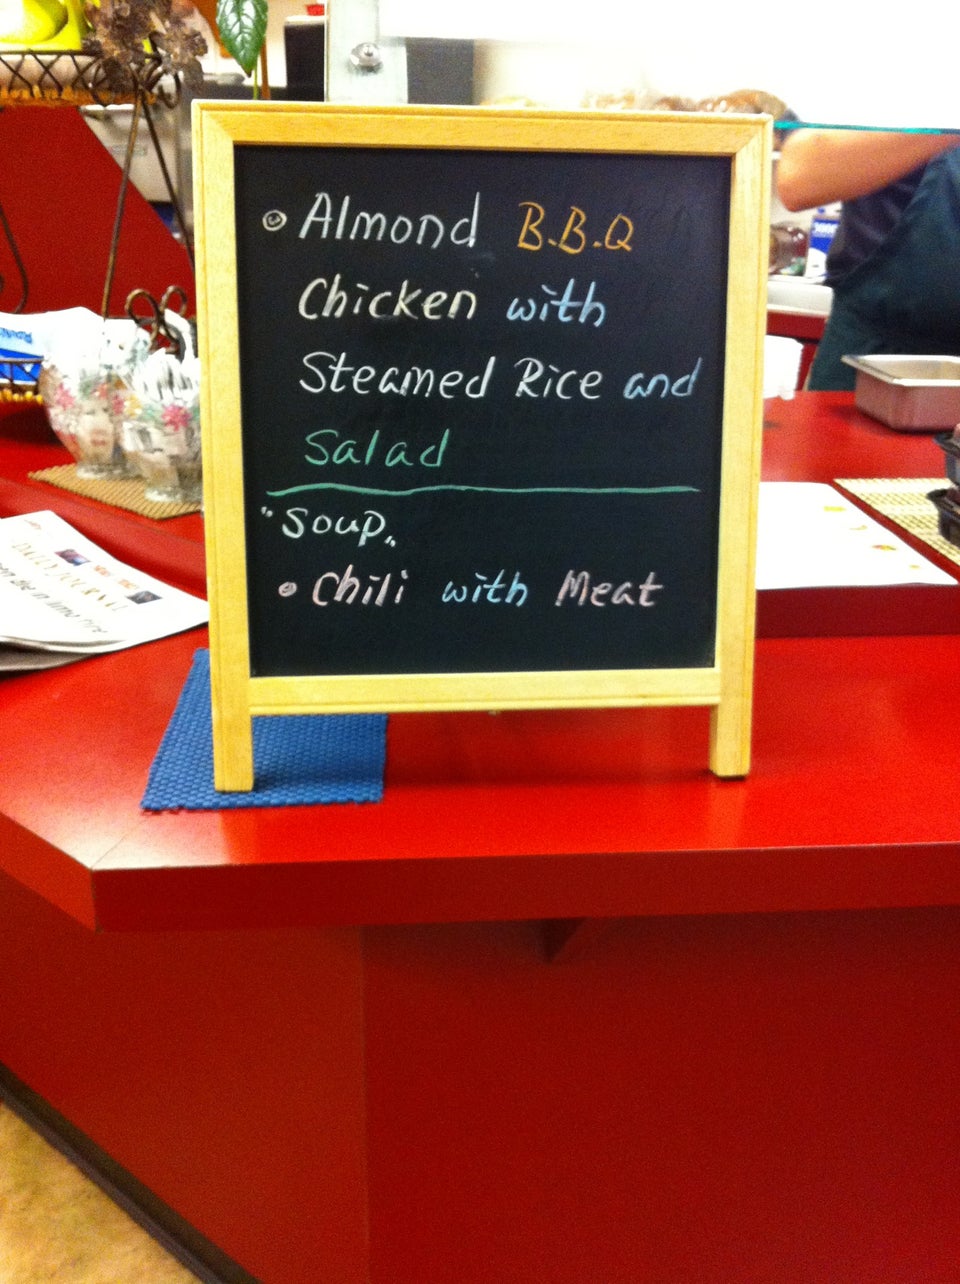 Almond B.B.Q
Chicken with
Steamed Rice and
Salad
"Soup"
• Chili with Meat
DAILY JOURNAL